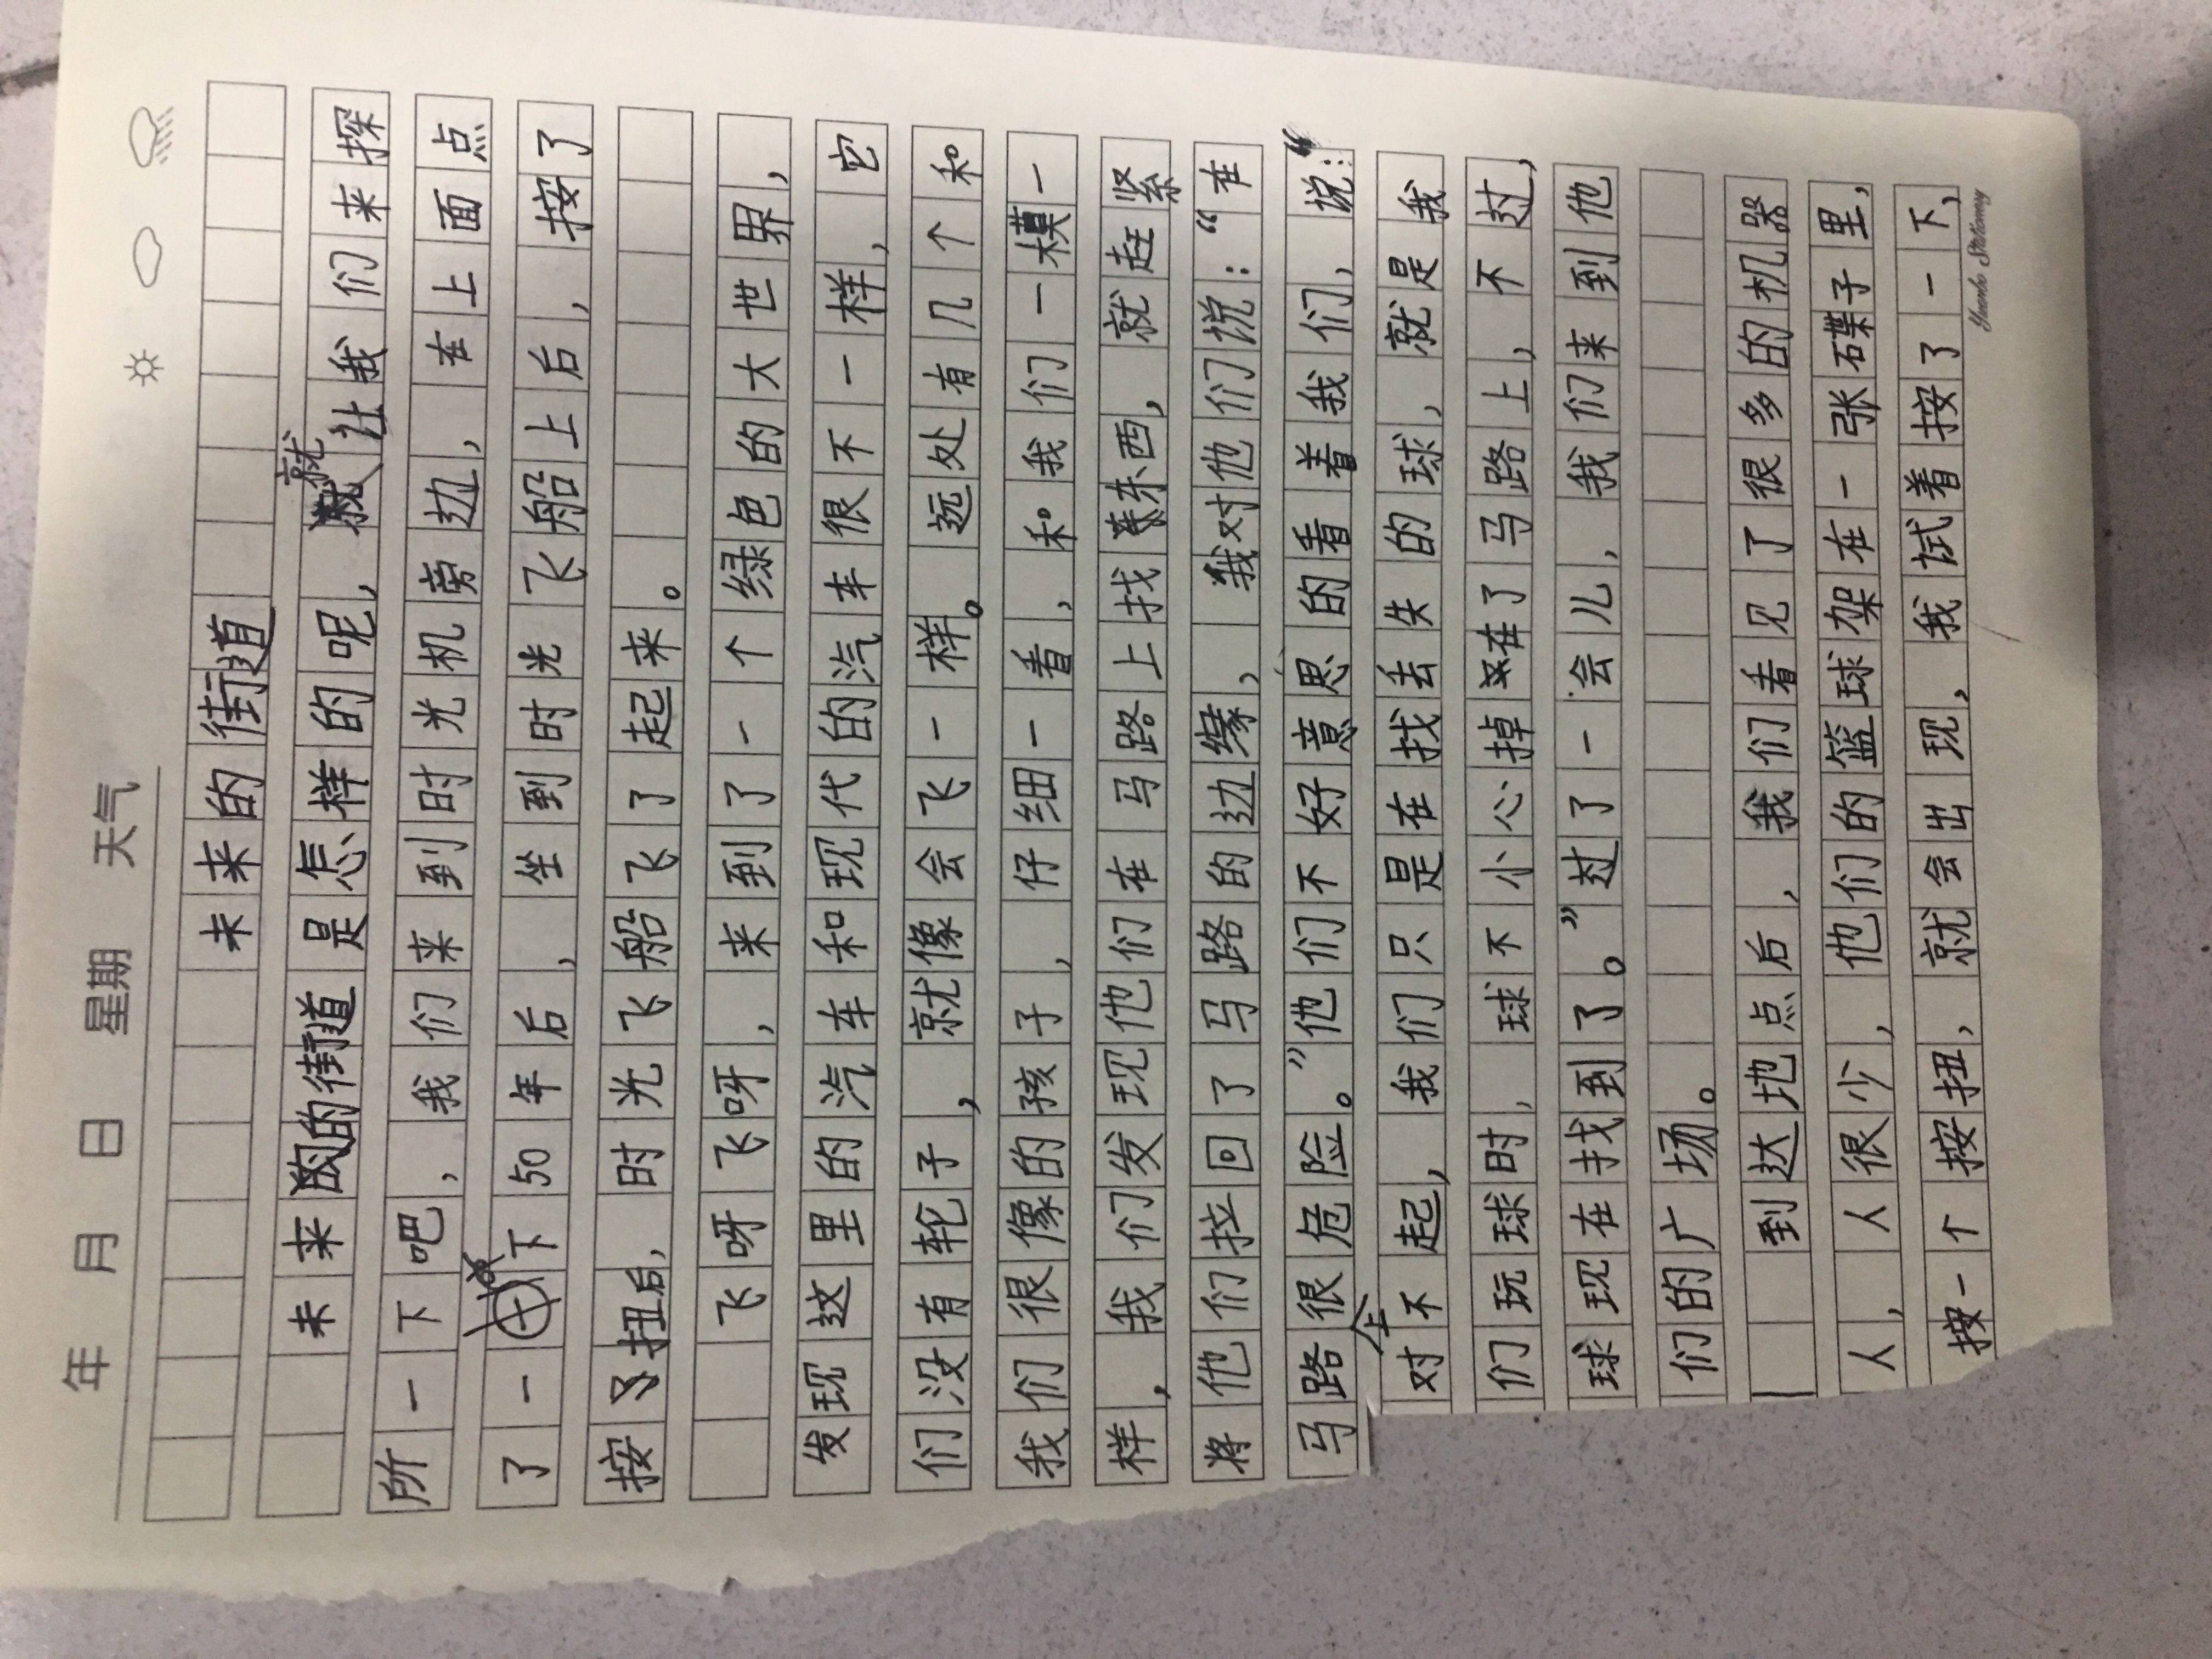 年 月 日 星期 天气
未来的街道
未来的街道是怎样的呢，就让我们来探
所一下吧，我们来到时光机旁边，在上面点
了一下50年后，坐到时光飞船上后，按了
按扭后，时光飞船飞了起来。
飞呀飞呀，来到了一个绿色的大世界，
发现这里的汽车和现代的汽车很不一样，它
们没有轮子，就像会飞一样。远处有几个和
我们很像的孩子，仔细一看，和我们一模一
样，我们发现他们在马路上找东西，就赶紧
将他们拉回了马路的边缘，我对他们说：“在
马路很危险。”他们不好意思的看着我们，说：“
对不起，我们只是在找丢失的球，就是我
们玩球时，球不小心掉在了马路上，不过，
球现在找到了。”过了一会儿，我们来到他
们的广场。
到达地点后，我们看见了很多的机器
人，人很少，他们的篮球架在一张碟子里，
按一个按扭，就会出现，我试着按了一下，
Yuanbo Stationery